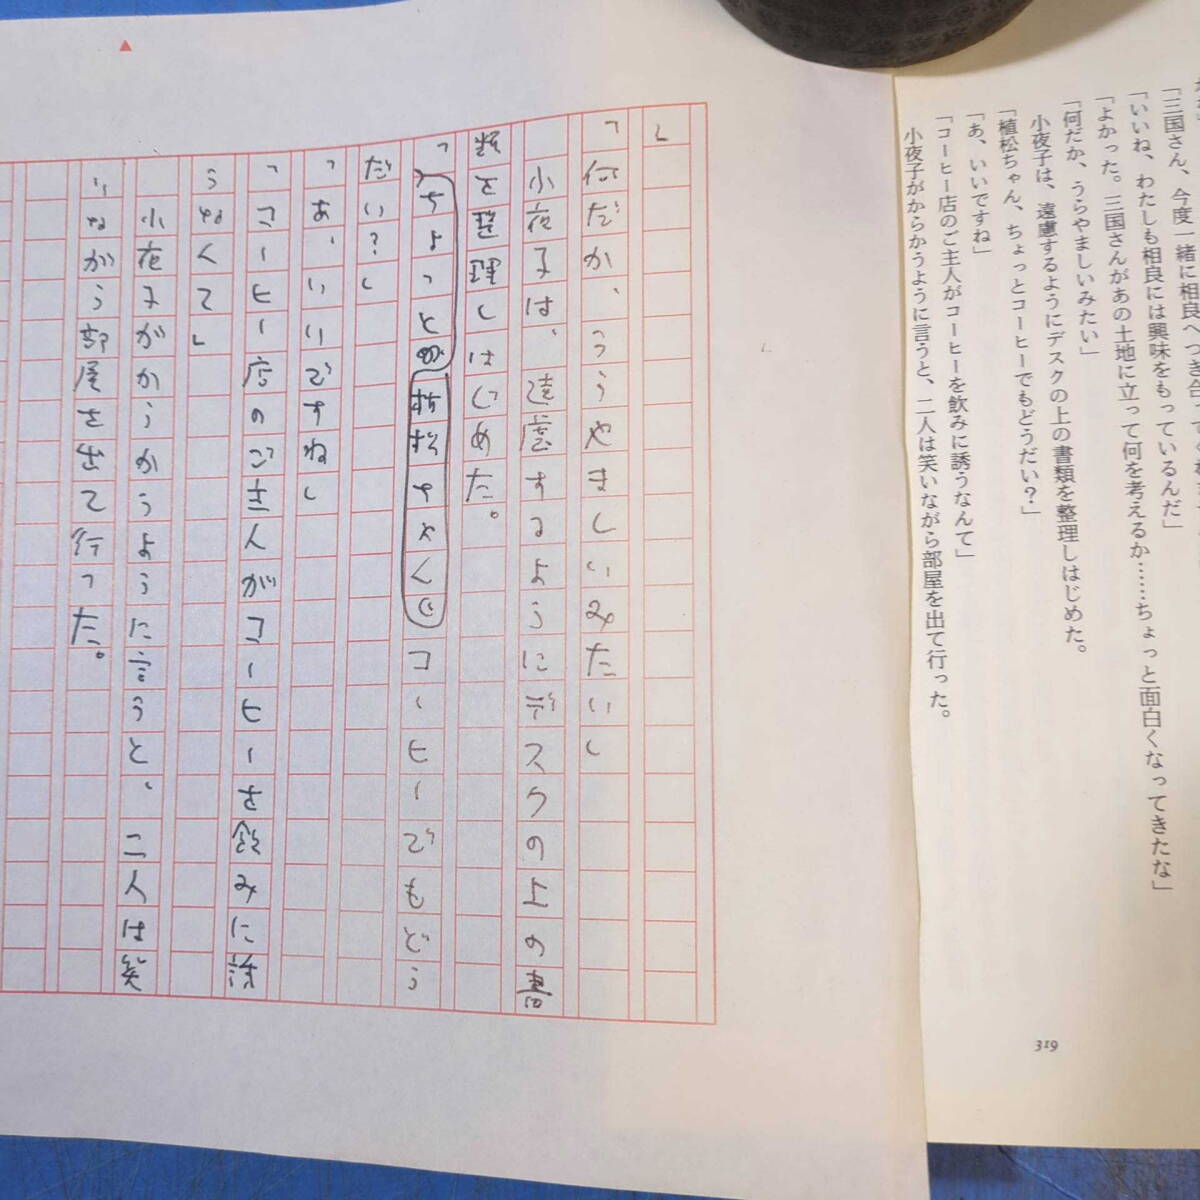 「三国さん、今度一緒に相良へつき合って
「いいね、わたしも相良には興味をもっているんだ」
「よかった。三国さんがあの土地に立って何を考えるか……ちょっと面白くなってきたな」
「何だか、うらやましいみたい」
小夜子は、遠慮するようにデスクの上の書類を整理しはじめた。
「植松ちゃん、ちょっとコーヒーでもどうだい？」
「あ、いいですね」
「コーヒー店のご主人がコーヒーを飲みに誘うなんて」
小夜子がからかうように言うと、二人は笑いながら部屋を出て行った。
319
」
「何だか、うらやましいみたい」
小夜子は、遠慮するようにデスクの上の書
類を整理しはじめた。
「ちょっと植松ちゃん、コーヒーでもどう
だい？」
「あ、いいですね」
「コーヒー店のご主人がコーヒーを飲みに誘
うなんて」
小夜子がからかうように言うと、二人は笑
いながら部屋を出て行った。